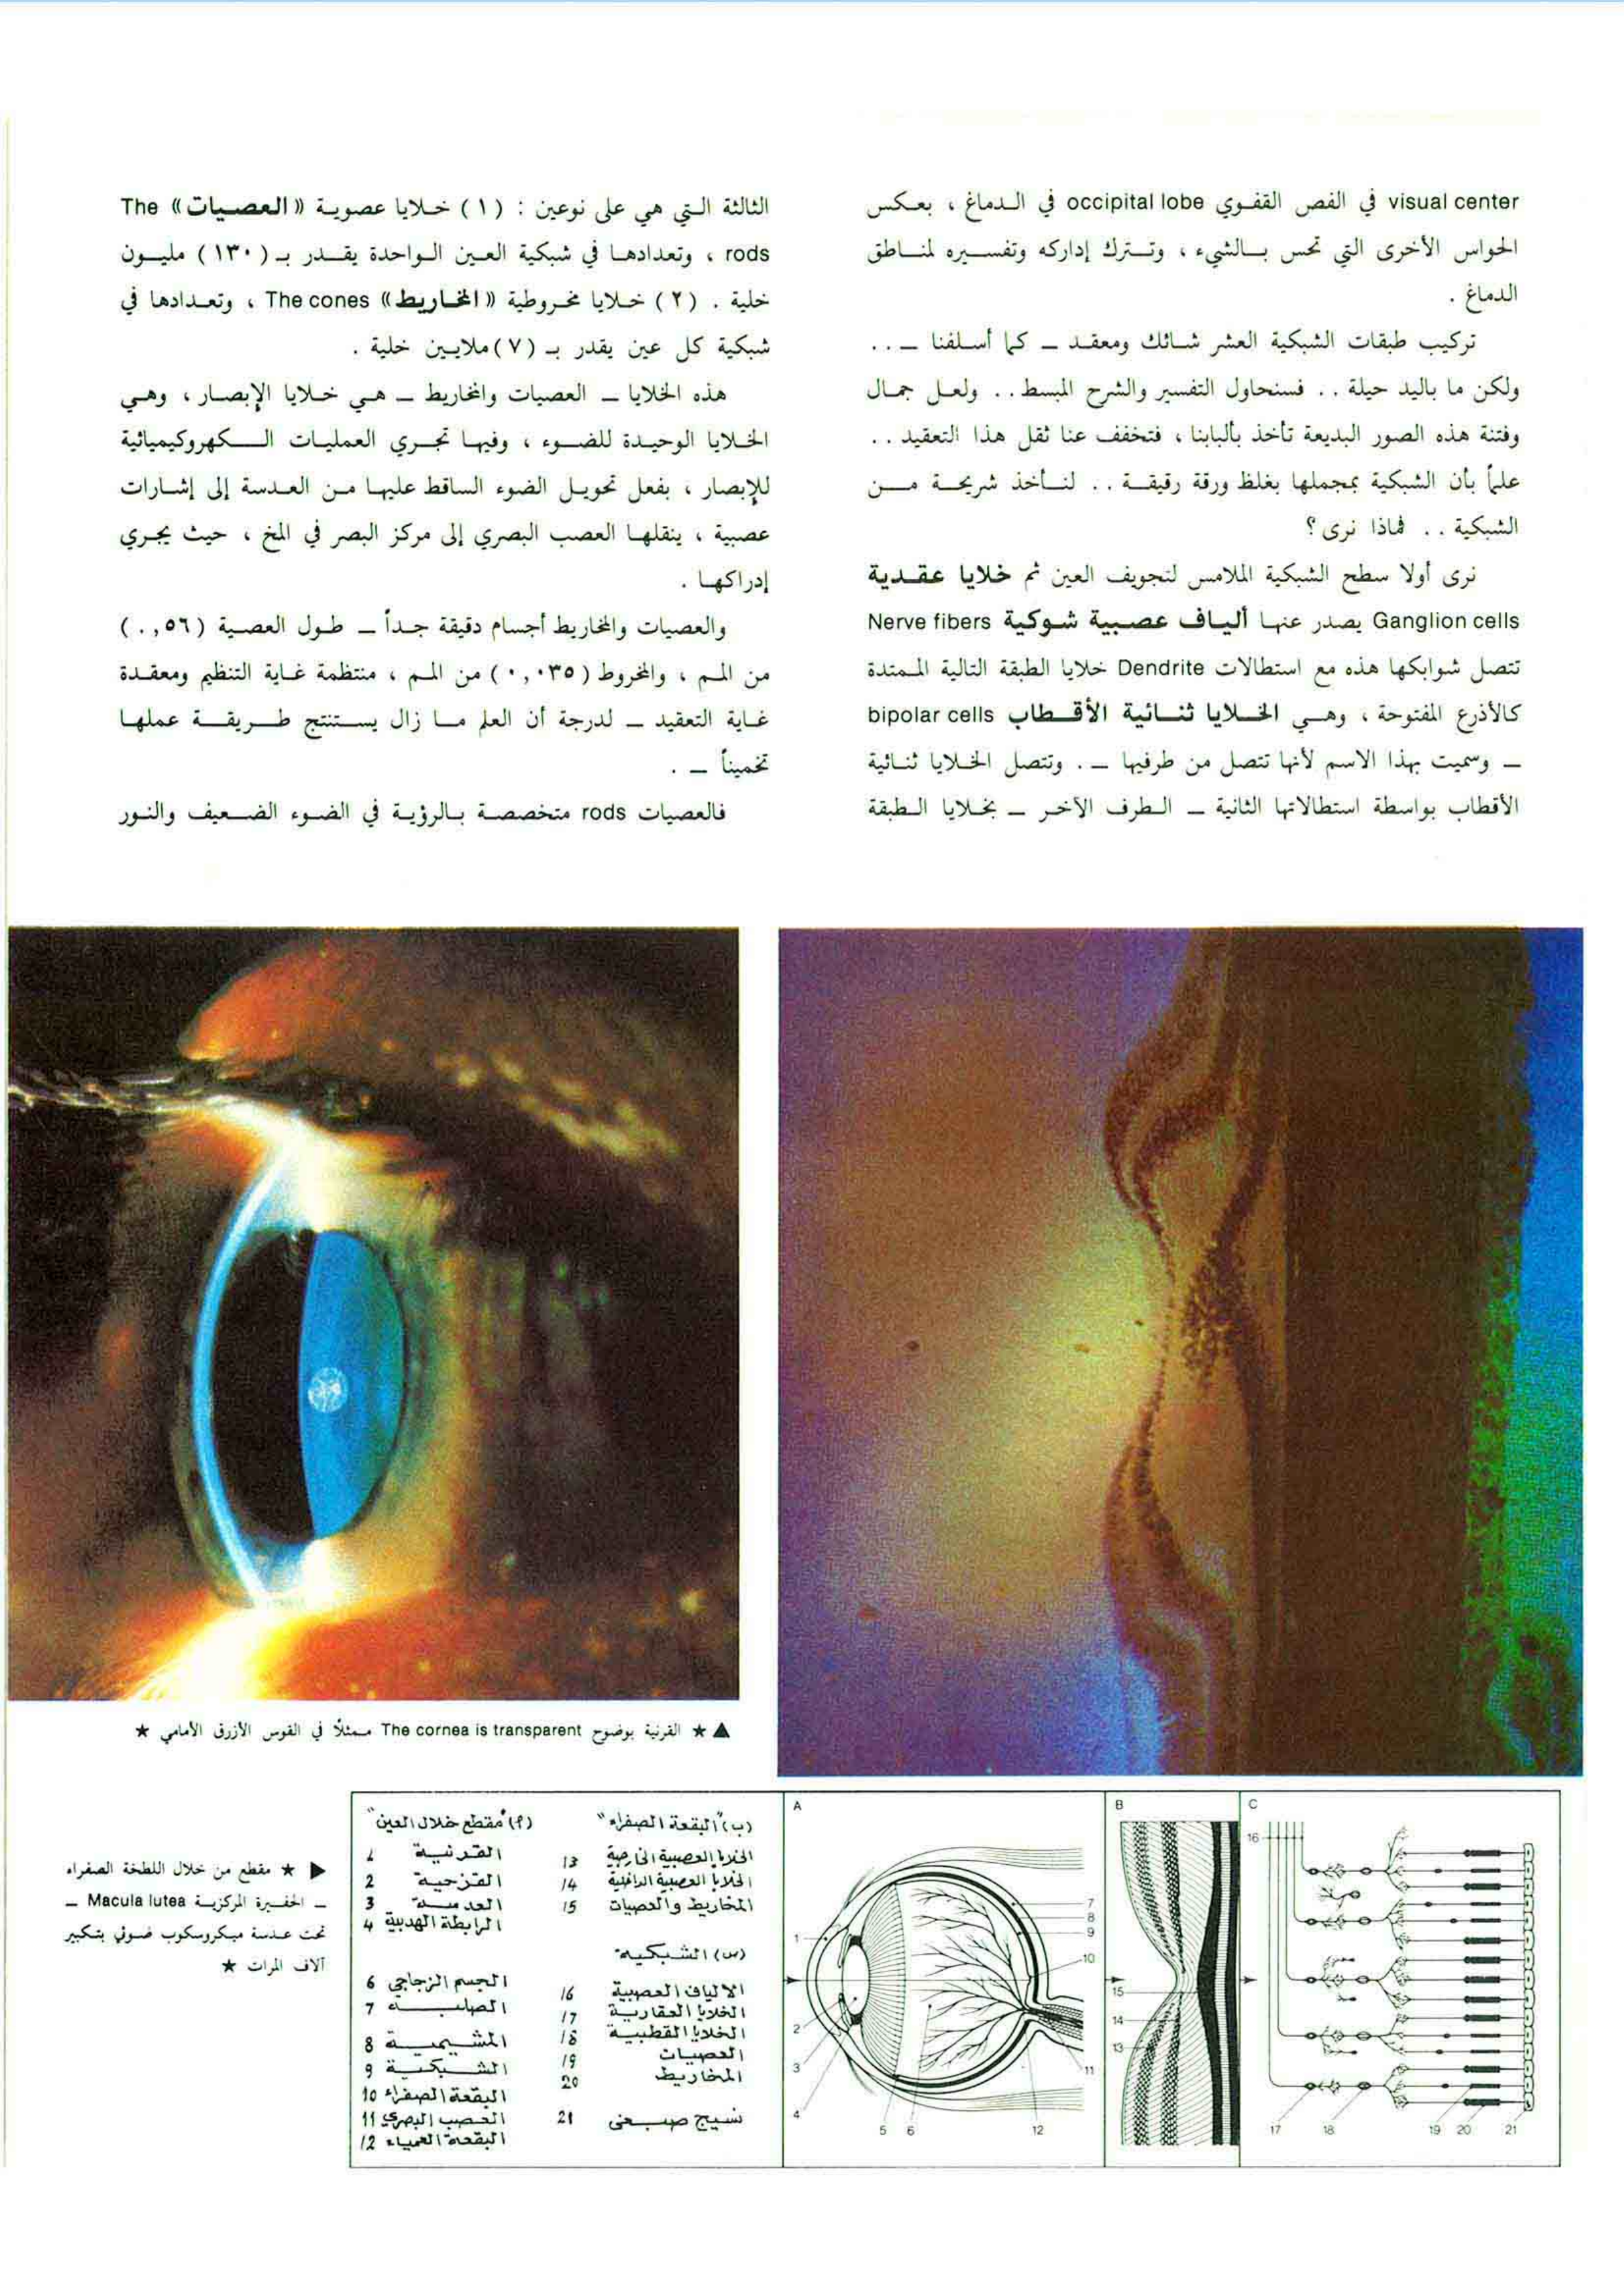 visual center في الفص القفوي occipital lobe في الدماغ ، بعكس
الحواس الأخرى التي تحس بالشيء ، وتترك إداركه وتفسيره لمناطق
الدماغ .
تركيب طبقات الشبكية العشر شائك ومعقد ــ كما أسلفنا ــ ..
ولكن ما باليد حيلة .. فسنحاول التفسير والشرح المبسط .. ولعل جمال
وفتنة هذه الصور البديعة تأخذ بألبابنا ، فتخفف عنا ثقل هذا التعقيد ..
علماً بأن الشبكية بمجملها بغلظ ورقة رقيقة .. لنأخذ شريحة من
الشبكية .. فماذا نرى ؟
نرى أولا سطح الشبكية الملامس لتجويف العين ثم خلايا عقدية
Ganglion cells يصدر عنها ألياف عصبية شوكية Nerve fibers
تتصل شوابكها هذه مع استطالات Dendrite خلايا الطبقة التالية الممتدة
كالأذرع المفتوحة ، وهي الخلايا ثنائية الأقطاب bipolar cells
ــ وسميت بهذا الاسم لأنها تتصل من طرفيها ــ . وتتصل الخلايا ثنائية
الأقطاب بواسطة استطالاتها الثانية ــ الطرف الآخر ــ بخلايا الطبقة
الثالثة التي هي على نوعين : ( ١ ) خلايا عصوية « العصيات » The
rods ، وتعدادها في شبكية العين الواحدة يقدر بـ ( ١٣٠ ) مليون
خلية . ( ٢ ) خلايا مخروطية « المخاريط » The cones ، وتعدادها في
شبكية كل عين يقدر بـ ( ٧ ) ملايين خلية .
هذه الخلايا ــ العصيات والمخاريط ــ هي خلايا الإبصار ، وهي
الخلايا الوحيدة للضوء ، وفيها تجري العمليات الكهروكيميائية
للإبصار ، بفعل تحويل الضوء الساقط عليها من العدسة إلى إشارات
عصبية ، ينقلها العصب البصري إلى مركز البصر في المخ ، حيث يجري
إدراكها .
والعصيات والمخاريط أجسام دقيقة جداً ــ طول العصية ( ٠,٥٦ )
من المم ، والمخروط ( ٠,٠٣٥ ) من المم ، منتظمة غاية التنظيم ومعقدة
غاية التعقيد ــ لدرجة أن العلم ما زال يستنتج طريقة عملها
تخميناً ــ .
فالعصيات rods متخصصة بالرؤية في الضوء الضعيف والنور
▲ ★ القرنية بوضوح The cornea is transparent ممثلاً في القوس الأزرق الأمامي ★
◀ ★ مقطع من خلال اللطخة الصفراء
ــ الحفيرة المركزية Macula lutea ــ
تحت عدسة ميكروسكوب ضوئي بتكبير
آلاف المرات ★
(أ) "مقطع خلال العين"
القرنية 1
القزحية 2
العدسة 3
الرابطة الهدبية 4
الجسم الزجاجي 6
الصلبة 7
المشيمية 8
الشبكية 9
البقعة الصفراء 10
العصب البصري 11
البقعة العمياء 12
(ب) "البقعة الصفراء"
الخلايا العصبية الخارجية 13
الخلايا العصبية الداخلية 14
المخاريط والعصيات 15
(س) الشبكية
الالياف العصبية 16
الخلايا العقارية 17
الخلايا القطبية 18
العصيات 19
المخاريط 20
نسيج صبغى 21
A
1
2
3
4
5
6
7
8
9
10
11
12
B
15
14
13
C
16
17
18
19
20
21